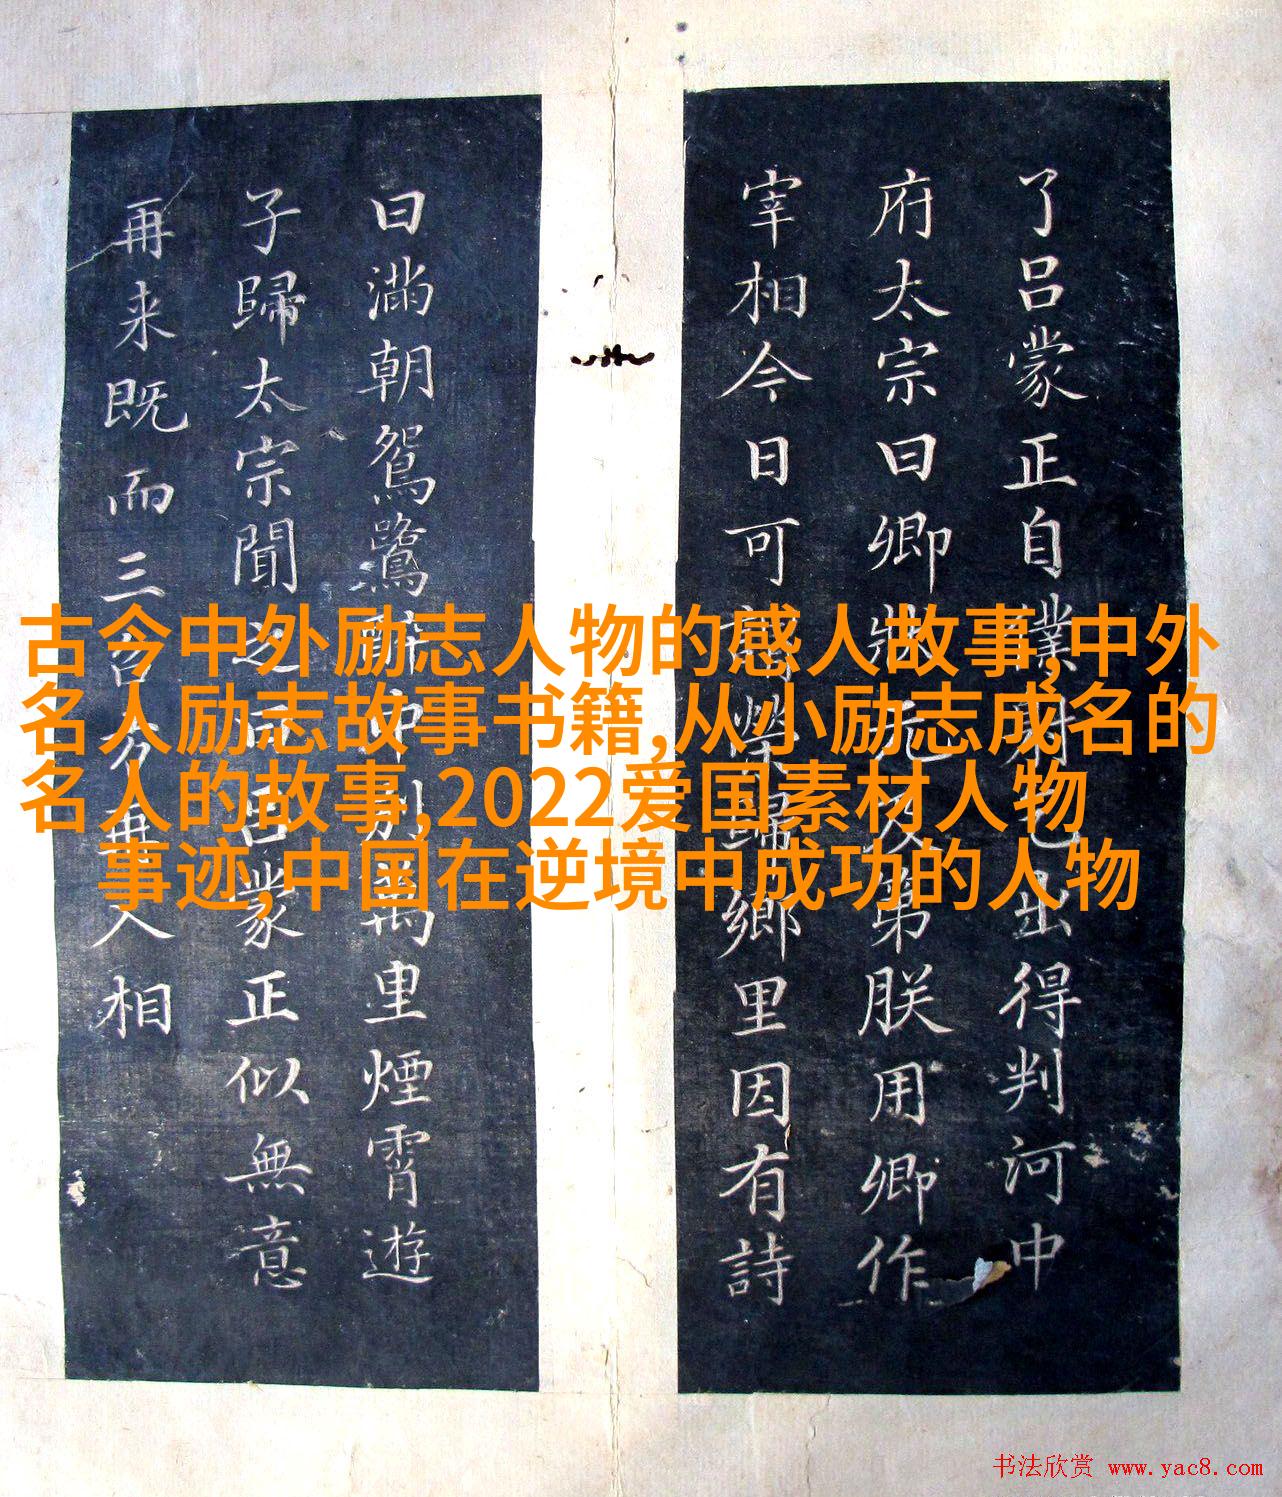 了吕蒙正自僕射乞出得判河中
府太宗曰卿状元及第朕用卿作
宰相今日可榮歸鄉里因有詩
曰滿朝鴛鷺醉中别萬里煙霄遊
子歸太宗聞之吕蒙正似無意
再来既而三台方再入相
古今中外励志人物的感人故事,中外
名人励志故事书籍,从小励志成名的
名人的故事,2022爱国素材人物
事迹,中国在逆境中成功的人物
书法欣赏 www.yac8.com